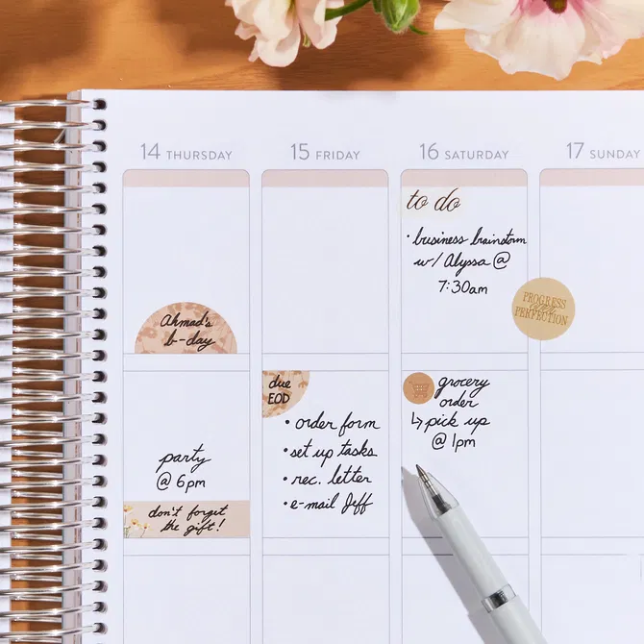 14 THURSDAY
15 FRIDAY
16 SATURDAY
17 SUNDAY
Ahmad's
b-day
party
@ 6pm
don't forget
the gift!
due
EOD
• order form
• set up tasks
• rec. letter
• e-mail Jeff
to do
• business brainstorm
w/ Alyssa @
7:30am
grocery
order
↳ pick up
@ 1pm
PROGRESS
PERFECTION